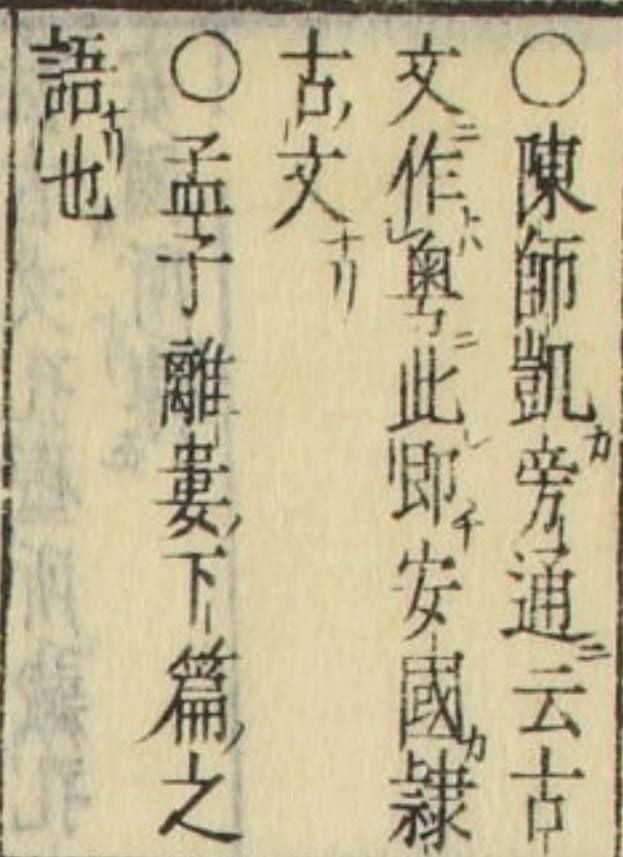 ○陳師凱カ旁通ニ云古
文ニ作トハレ粤ニ此レ即チ安國カ隷
古ノ文ナリ
○孟子離婁ノ下篇ノ之
語ナリ也